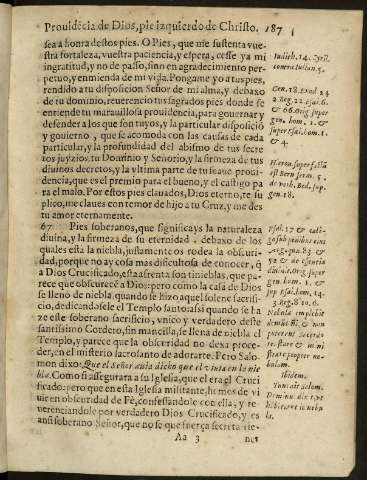 Prouidēcia de Dios, pie izquierdo de Christo. 187
sea a honra destos pies. O Pies, que me sustenta vue-
stra fortaleza, vuestra paciencia, y espera, cesse ya mi
ingratitud, y no de passo, sino en agradecimiento per-
petuo, y enmienda de mi vida. Pongame yo a tus pies,
rendido a tu disposicion Señor de mi alma, y debaxo
de tu dominio, reuerencio tus sagrados pies donde se
entiende tu marauillosa prouidencia, para gouernar y
defender a los que son tuyos, y la particular disposiciō
y gouierno, que se acomoda con las causas de cada
particular, y la profundidad del abismo de tus secre
tos juyzios, tu Dominio y Señorio, y la firmeza de tus
diuinos decretos, y la vltima parte de tu suaue proui
dencia, que es el premio para el bueno, y el castigo pa
ra el malo. Por estos pies clauados, Dios eterno, te su
plico, me claues con temor de hijo a tu Cruz, y me des
tu amor eternamente.
67 Pies soberanos, que significays la naturaleza
diuina, y la firmeza de su eternidad, debaxo de los
quales esta la niebla, justamente os rodea la obscuri-
dad, porque no ay cosa mas dificultosa de conocer, q̄
a Dios Crucificado, esta afrenta son tinieblas, que pa
rece que obscurecē a Dios: pero como la casa de Dios
se lleno de niebla, quando se hizo aquel solene sacrifi-
cio, dedicandosele el Templo santo: assi quando se ha
ze este soberano sacrificio, vnico y verdadero deste
santissimo Cordero, sin manzilla, se llena de niebla el
Templo, y parece que la obscuridad no dexa proce-
der, en el misterio sacrosanto de adorarte. Pero Salo-
mon dixo: Que el Señor auia dicho que el viuia en la nie
bla. Como si assegurara a su Iglesia, que el era el Cruci
ficado: pero que en esta Iglesia militante, hemos de vi
uir en obscuridad de Fè, confessandole con ella, y re-
uerenciandole por verdadero Dios Crucificado, y es
ansi soberano Señor, que no se que fuerça secreta tie-
Aa 3 nes
Iudith. 14. Cyril.
contra Iulian. 5.
Gen. 18. Exod 24
2. Reg. 22. Esai. 6.
& 66. Orig super
gen. hom. 1. &
super Esai. hom. 1.
& 4.
Hieron. super Esai.
est Bern serm. 5.
de verb. Bed. sup.
gen. 18.
Psal. 17
Ibidem.